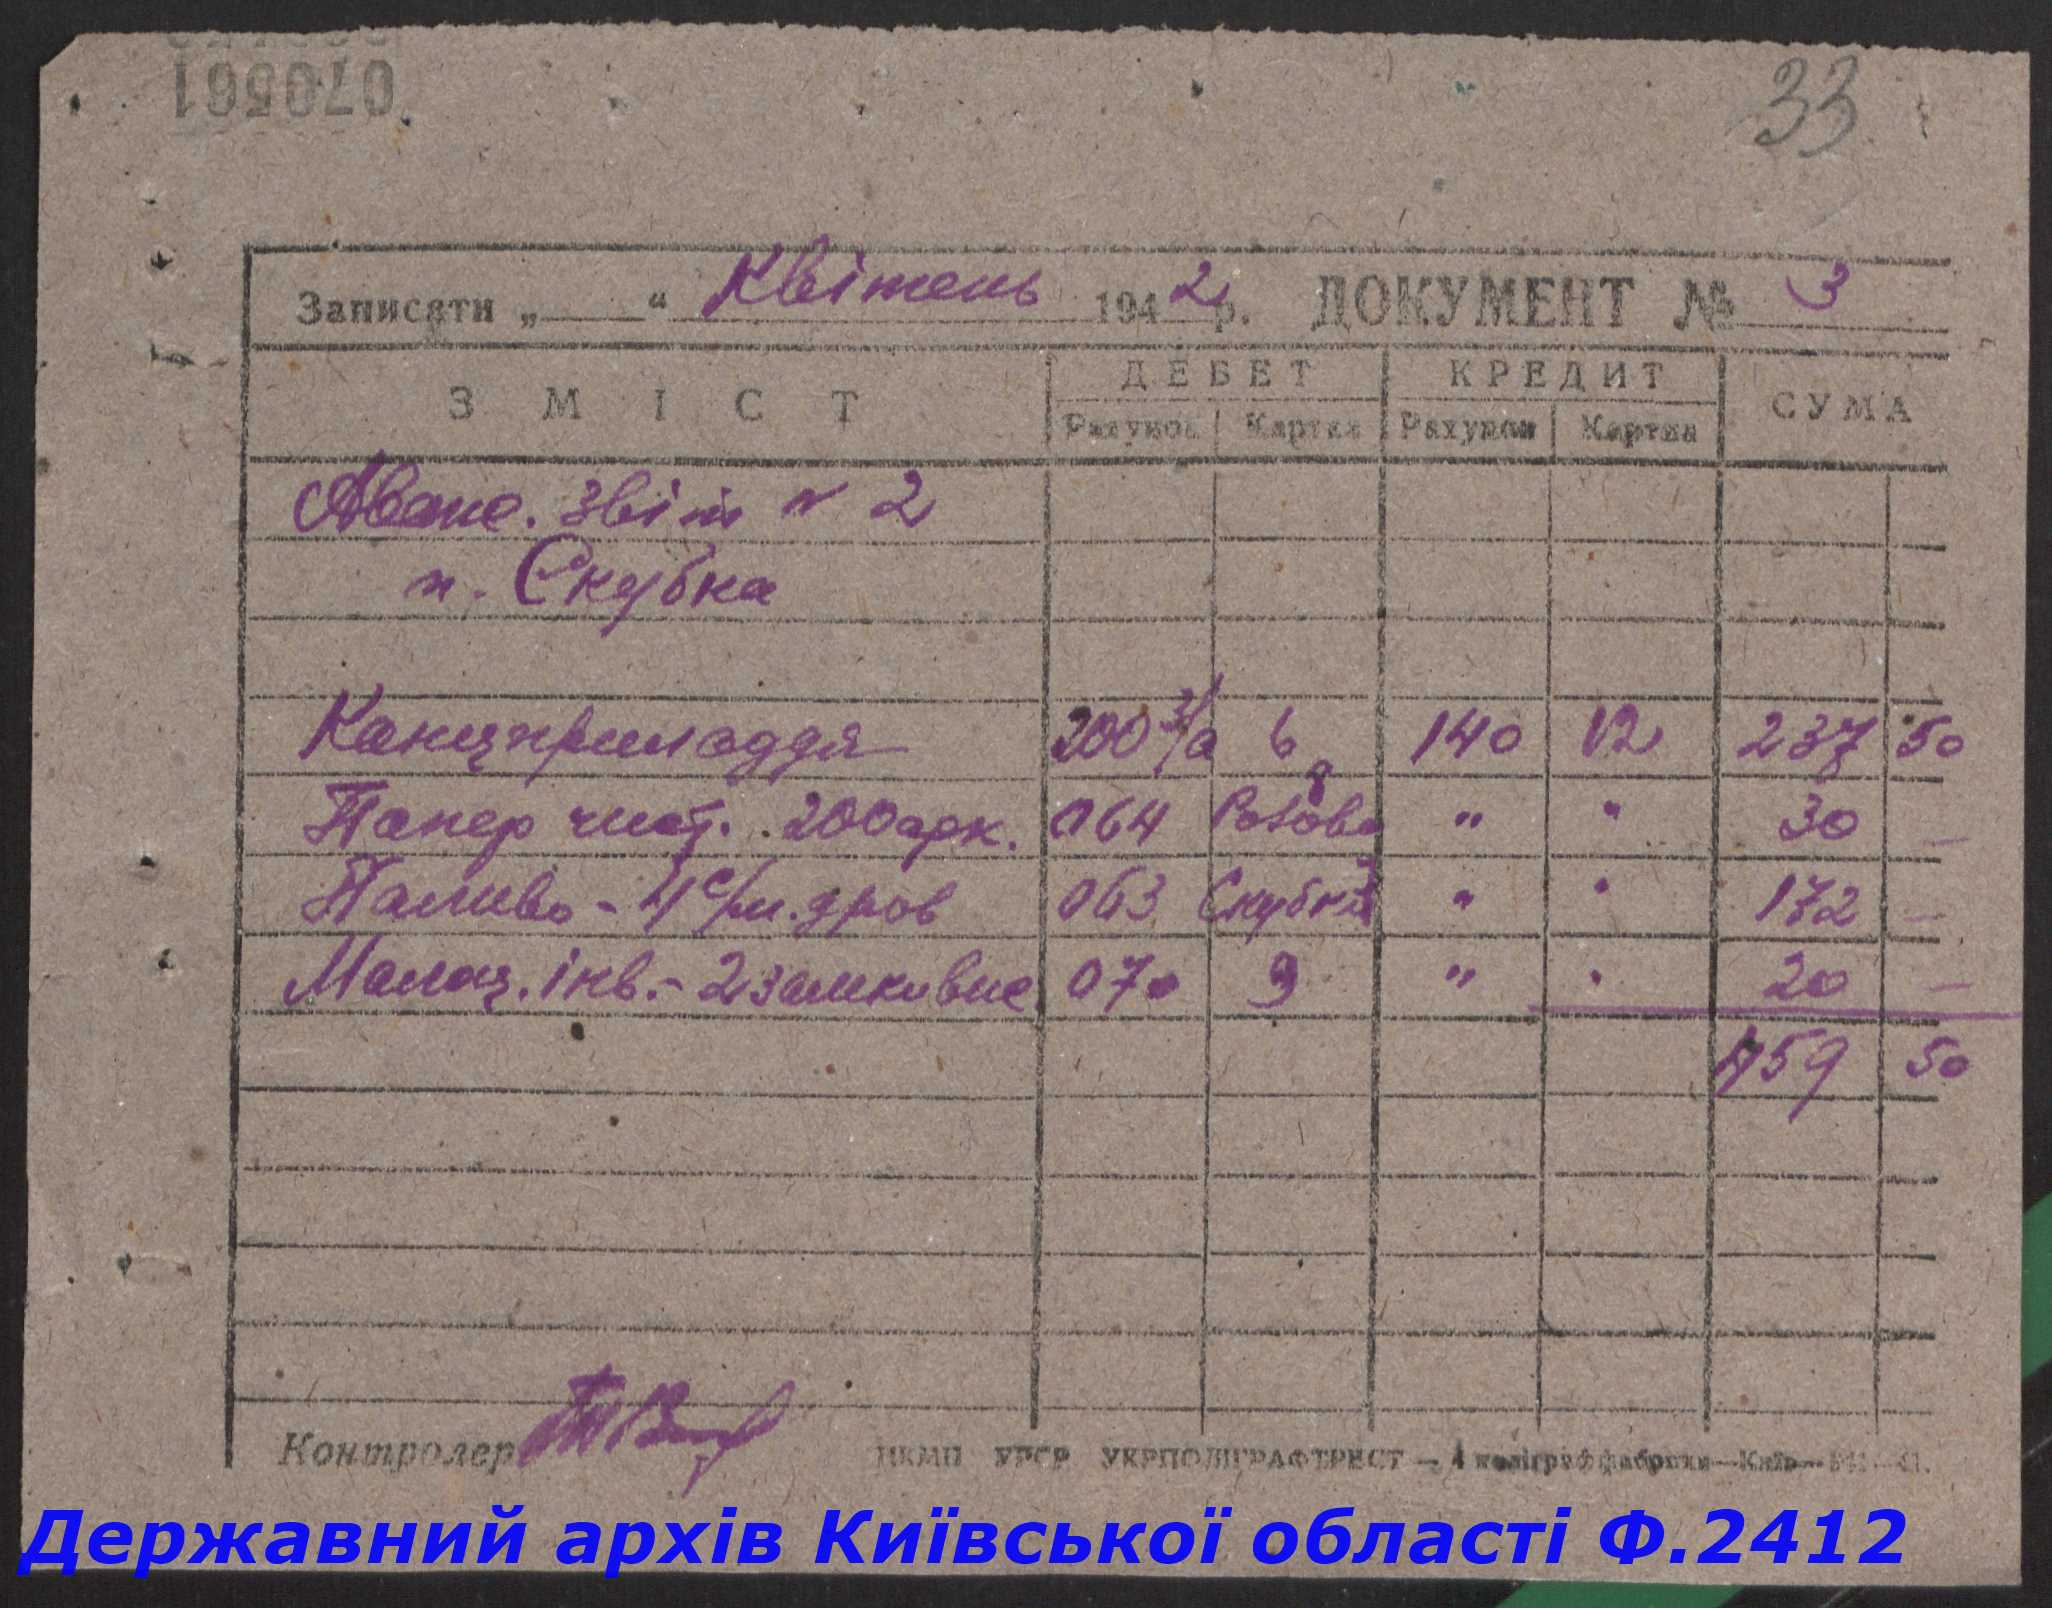 070561
33
Записати „ “ Квітень 1942 р. ДОКУМЕНТ № 3
ЗМІСТ ДЕБЕТ КРЕДИТ СУМА
Рахунок Картка Рахунок Картка
Аванс. звіт № 2
п. Скубка
Канцприладдя 200 6 140 12 237 50
Папер чист. 200 арк. 064 " " 30 —
Паливо - 4 с/м. дров 063 Скубка " " 172 —
Малоц. інв. - 2 замки внс 070 9 " " 20 —
459 50
Контролер
НКМП УРСР УКРПОЛІГРАФТРЕСТ — 4 поліграффабрика — Київ —
Державний архів Київської області Ф.2412